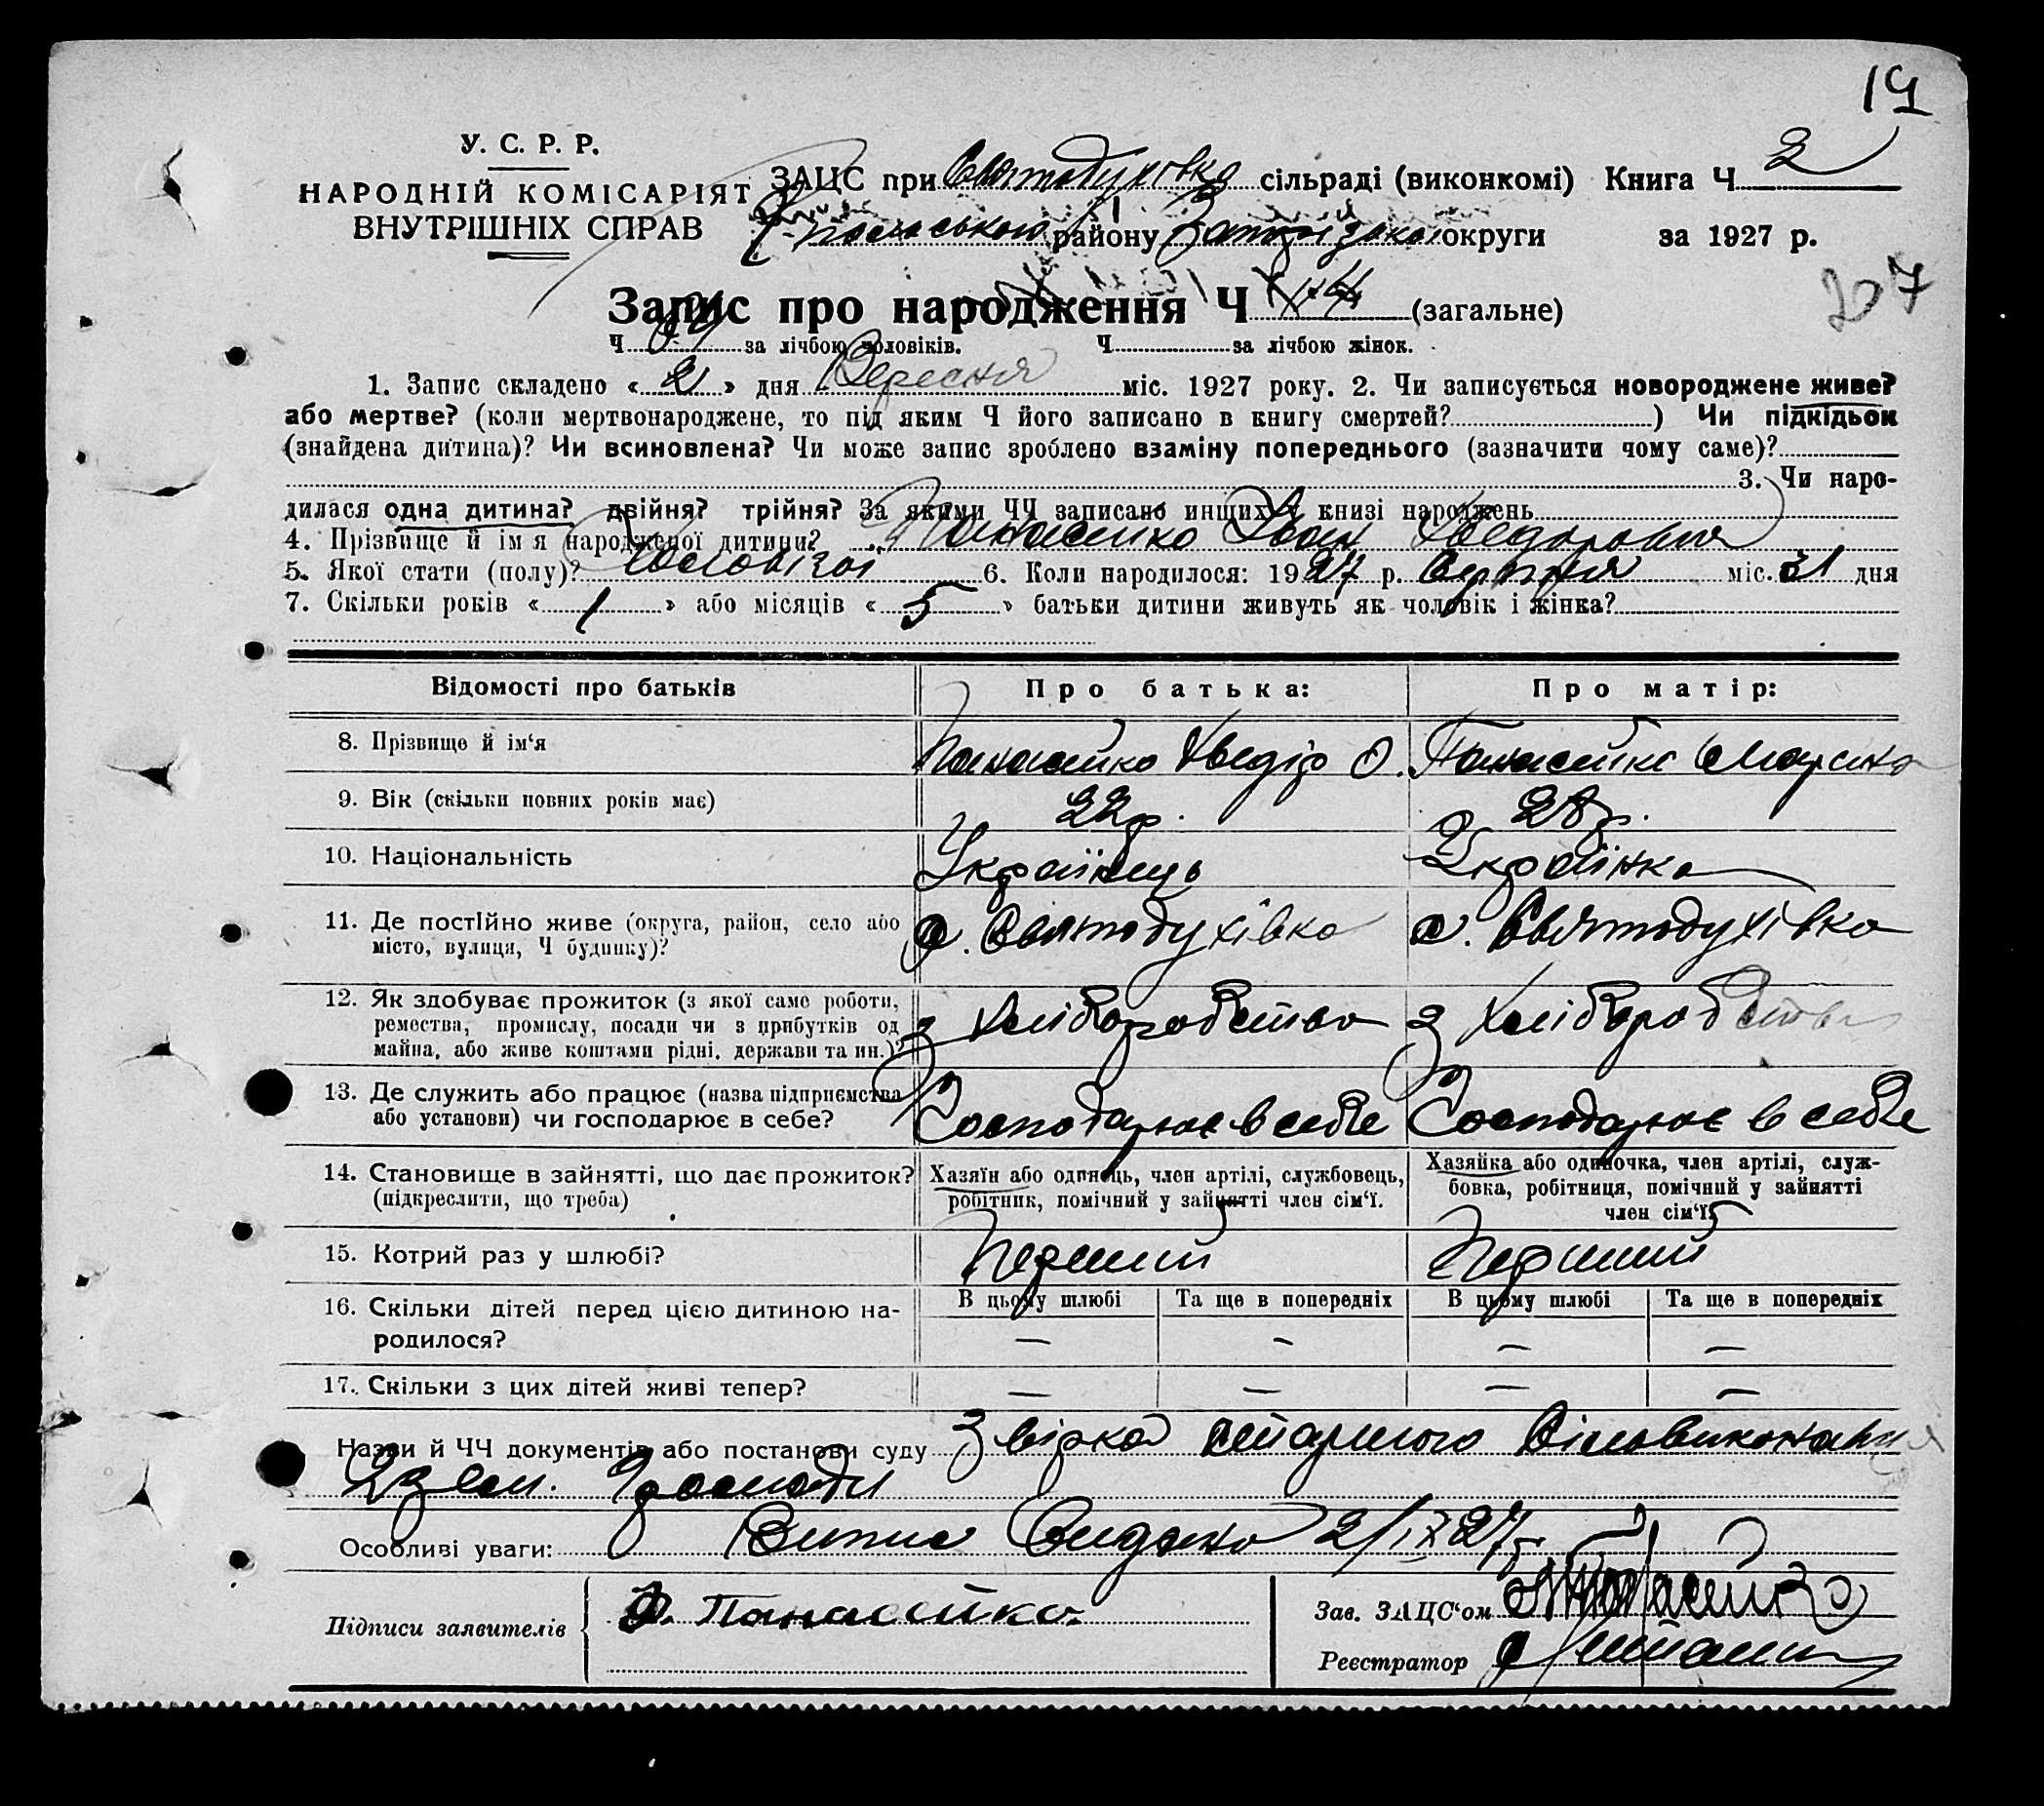 19
У. С. Р. Р.
НАРОДНІЙ КОМІСАРІЯТ
ВНУТРІШНІХ СПРАВ
ЗАЦС при Святодухівка сільраді (виконкомі) Книга Ч 2
району округи за 1927 р.
207
Запис про народження Ч (загальне)
Ч за лічбою чоловіків. Ч за лічбою жінок.
1. Запис складено « 2 » дня Вересня міс. 1927 року. 2. Чи записується новороджене живе?
або мертве? (коли мертвонароджене, то під яким Ч його записано в книгу смертей? ) Чи підкідьок
(знайдена дитина)? Чи всиновлена? Чи може запис зроблено взаміну попереднього (зазначити чому саме)?
3. Чи наро-
дилася одна дитина? двійня? трійня? За якими ЧЧ записано инщих у книзі народжень
4. Прізвище й імя народженої дитини? Панасейко Іван Хведорович
5. Якої стати (полу)? Чоловічої 6. Коли народилося: 1927 р. Серпня міс. 31 дня
7. Скільки років « 1 » або місяців « 5 » батьки дитини живуть як чоловік і жінка?
Відомості про батьків Про батька: Про матір:
8. Прізвище й ім'я Панасейко Хведір О. Панасейко
9. Вік (скільки повних років має) 22 р. 28 р.
10. Національність Українець Українка
11. Де постійно живе (округа, район, село або с. Святодухівка с. Святодухівка
місто, вулиця, Ч будинку)?
12. Як здобуває прожиток (з якої саме роботи, з Хліборобства з Хліборобства
ремества, промислу, посади чи з прибутків од
майна, або живе коштами рідні, держави та ин.)?
13. Де служить або працює (назва підприємства Господарює в себе Господарює в себе
або установи) чи господарює в себе?
14. Становище в зайнятті, що дає прожиток? Хазяїн або одинець, член артілі, службовець, Хазяйка або одиночка, член артілі, служ-
(підкреслити, що треба) робітник, помічний у зайнятті член сім'ї. бовка, робітниця, помічний у зайнятті
член сім'ї.
15. Котрий раз у шлюбі? Перший Перший
16. Скільки дітей перед цією дитиною на- В цьому шлюбі Та ще в попередніх В цьому шлюбі Та ще в попередніх
родилося? — — — —
17. Скільки з цих дітей живі тепер? — — — —
Назви й ЧЧ документів або постанови суду
Громади
Особливі уваги: Випис Видано 2/IX 27
Підписи заявителів Ф. Панасейко Зав. ЗАЦС'ом
Реєстратор